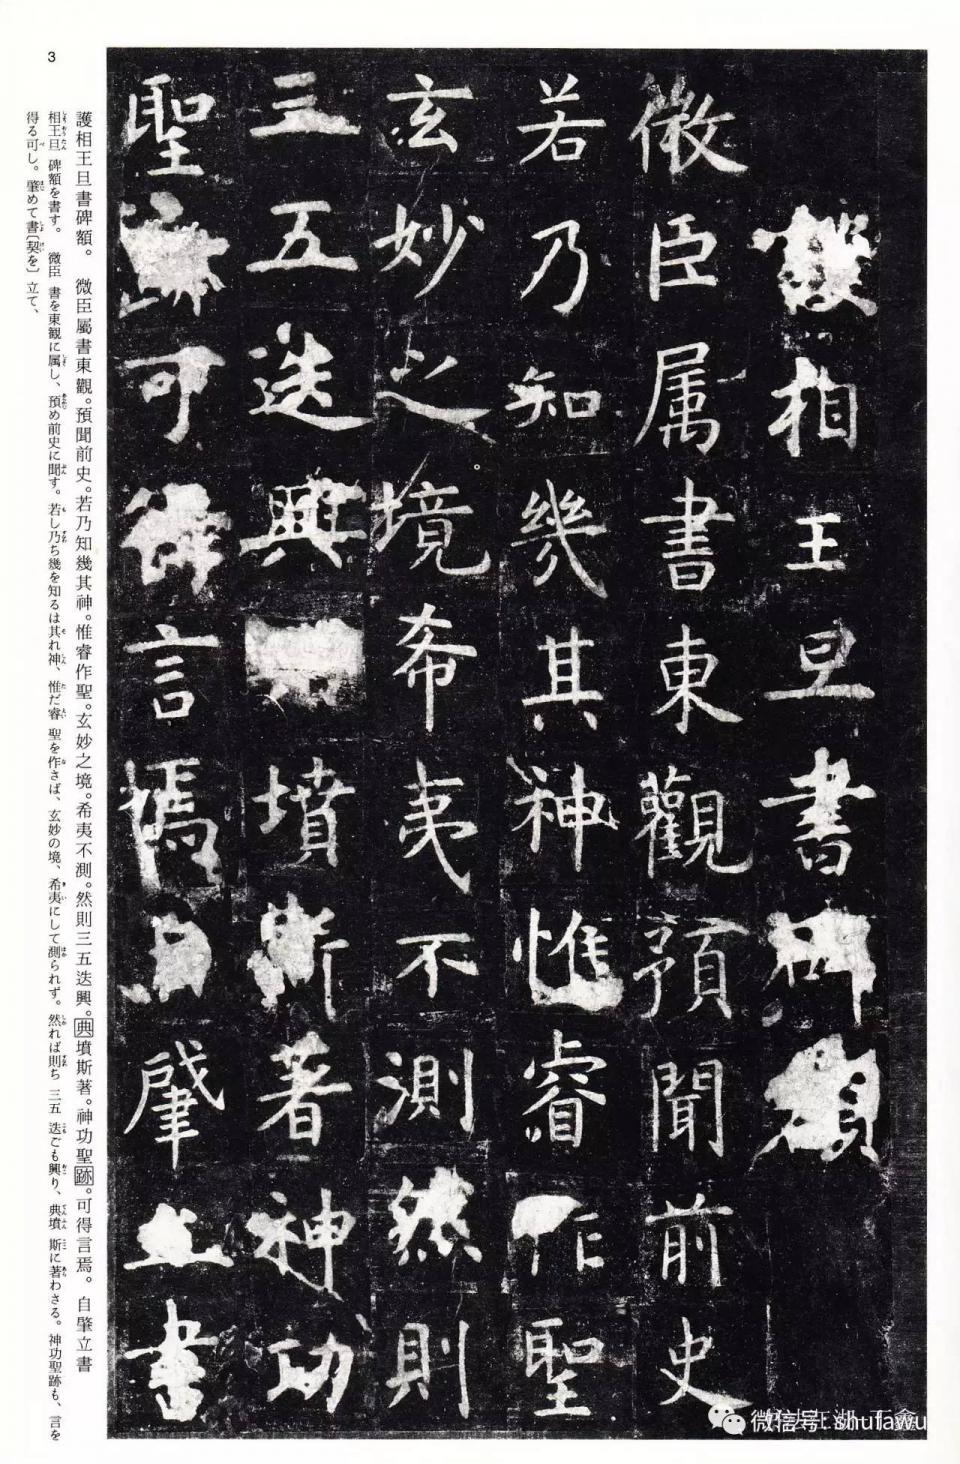 護相王旦書碑額
微臣属書東觀預聞前史
若乃知幾其神惟睿作聖
玄妙之境希夷不測然則
三五迭興典墳斯著神功
聖跡可得言焉自肇立書
護相王旦書碑額。 微臣屬書東觀。預聞前史。若乃知幾其神。惟睿作聖。玄妙之境。希夷不測。然則三五迭興。典墳斯著。神功聖跡。可得言焉。 自肇立書
相王旦 碑額を書す。 微臣 書を東観に属し、預め前史に聞す。若し乃ち幾を知るは其れ神、惟だ睿 聖を作さば、玄妙の境、希夷にして測られず。然れば則ち 三五 迭ごも興り、典墳 斯に著わさる。神功聖跡も、言を
得る可し。肇めて書〔契を〕立て、
3
微信号: shufawu